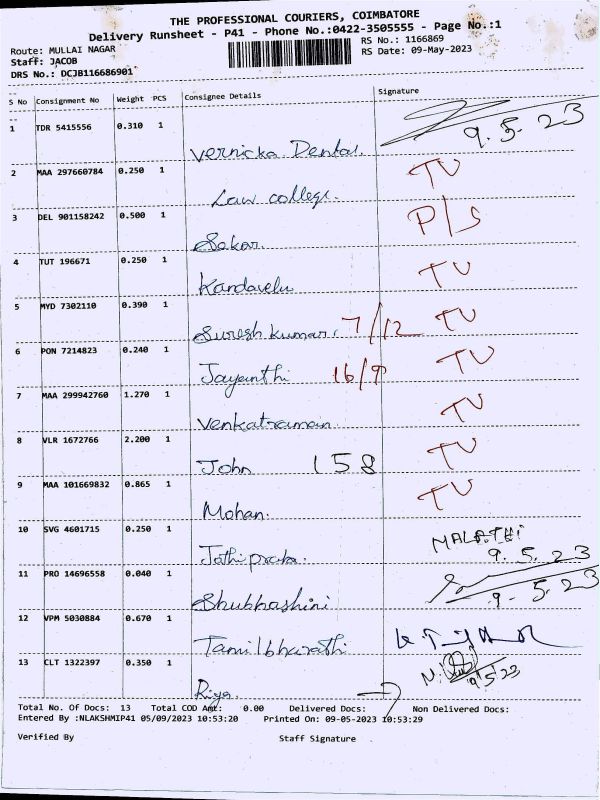 THE PROFESSIONAL COURIERS, COIMBATORE
Delivery Runsheet - P41 - Phone No.:0422-3505555 - Page No.:1
Route: MULLAI NAGAR
RS No.: 1166869
Staff: JACOB
RS Date: 09-May-2023
DRS No.: DCJB116686901
S No Consignment No Weight PCS Consignee Details Signature
1 TDR 5415556 0.310 1
9.5.23
Vernicka Dental.
2 MAA 297660784 0.250 1 TU
Law college.
3 DEL 901158242 0.500 1 P/S
Sekar.
4 TUT 196671 0.250 1 TU
Kandavelu
5 MYD 7302110 0.390 1 TU
Suresh kumar. 7/12
6 PON 7214823 0.240 1 TU
Jayanthi 16/9
7 MAA 299942760 1.270 1 TU
Venkatraman.
8 VLR 1672766 2.200 1 TU
John 158
9 MAA 101669832 0.865 1 TU
Mohan.
10 SVG 4601715 0.250 1 MALATHI
9.5.23
11 PRO 14696558 0.040 1
9.5.23
Shubhashini
12 VPM 5030884 0.670 1
Tamilbharathi
13 CLT 1322397 0.350 1
9/5/23
Riya.
Total No. Of Docs: 13 Total COD Amt: 0.00 Delivered Docs: Non Delivered Docs:
Entered By :NLAKSHMIP41 05/09/2023 10:53:20 Printed On: 09-05-2023 10:53:29
Verified By Staff Signature